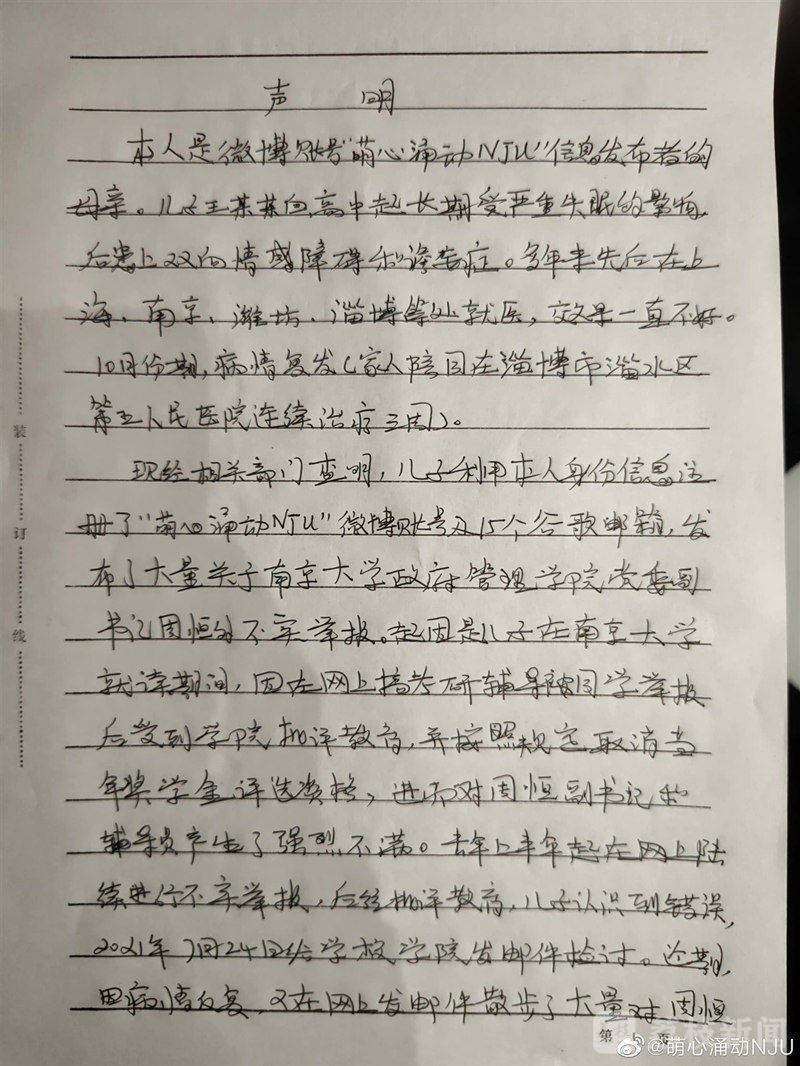 声 明
本人是微博账号"萌心涌动NJU"信息发布者的
母亲。儿子王某某自高中起长期受严重失眠的影响,
后患上双向情感障碍和渗妄症。多年来先后在上
海、南京、潍坊、淄博等处就医,效果一直不好。
10月份期,病情复发(家人陪同在淄博市淄水区
第五人民医院连续治疗三周)。
现经相关部门查明,儿子利用本人身份信息注
册了"萌心涌动NJU"微博账号及15个谷歌邮箱,发
布了大量关于南京大学政府管理学院党委副
书记周恒的不实举报。起因是儿子在南京大学
就读期间,因在网上搞考研辅导被同学举报
后受到学院批评教育,并按照规定取消当
年奖学金评选资格,进而对周恒副书记和
辅导员产生了强烈不满。去年上半年起在网上陆
续进行不实举报,后经批评教育,儿子认识到错误,
2021年7月24日给学校学院发邮件检讨。近期,
因病情反复,又在网上发邮件散步了大量对周恒
装
订
线
第 页
荔枝新闻
@萌心涌动NJU